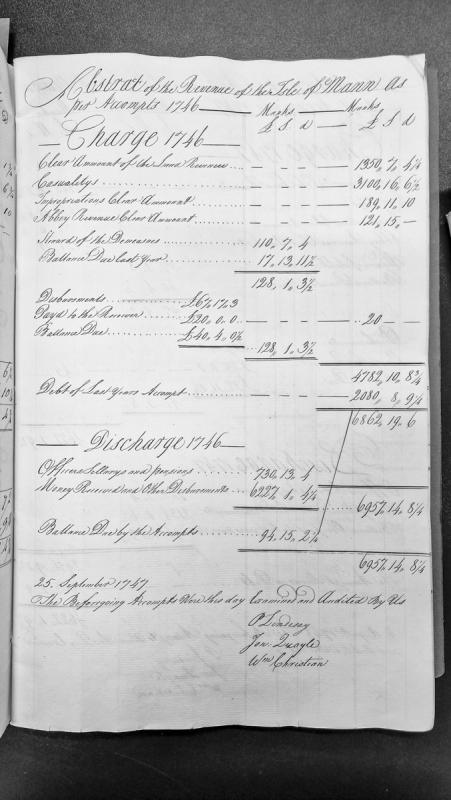 Abstrat of the Revenue of the Isle of Mann As
per Accompts 1746 — Manks — Manks
£ s d — £ s d
— Charge 1746 —
Clear Ammount of the Land Revenue ... — — — 1350,, 7,, 4¼
Casualtys ... — — — 3100,, 16,, 6½
Impropriations Clear Ammount ... — — — 189,, 11,, 10
Abbey Revenue Clear Ammount ... — — — 121,, 15,, —
Steward of the Demeasnes ... 110,, 7,, 4
Ballance Due Last Year ... 17,, 13,, 11½
128,, 1,, 3½
Disbursments ... £67,, 17,, 3
Payd to the Receiver ... £20,, 0,, 0 — — — 20 —
Ballance Due ... £40,, 4,, 0½
128,, 1,, 3½
4782,, 10,, 8¾
Debt of Last Years Accompt — — — 2080,, 8,, 9¼
6862,, 19,, 6
— Discharge 1746 —
Officers Sellarys and pensions ... 730,, 13,, 4
Money Received and Other Disbursments ... 6227,, 1,, 4¼
6957,, 14,, 8¼
Ballane Due by the Accompts ... 94,, 15,, 2¼
6957,, 14,, 8¼
25. September 1747
The Beforegoing Accompts Were this day Examined and Audited By Us
P Lindesay
Jon: Quayle
Wm Christian